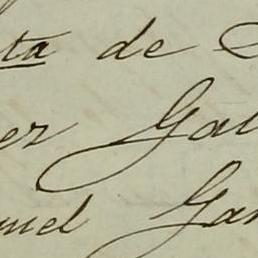 ta de
er Gal
uel Gar